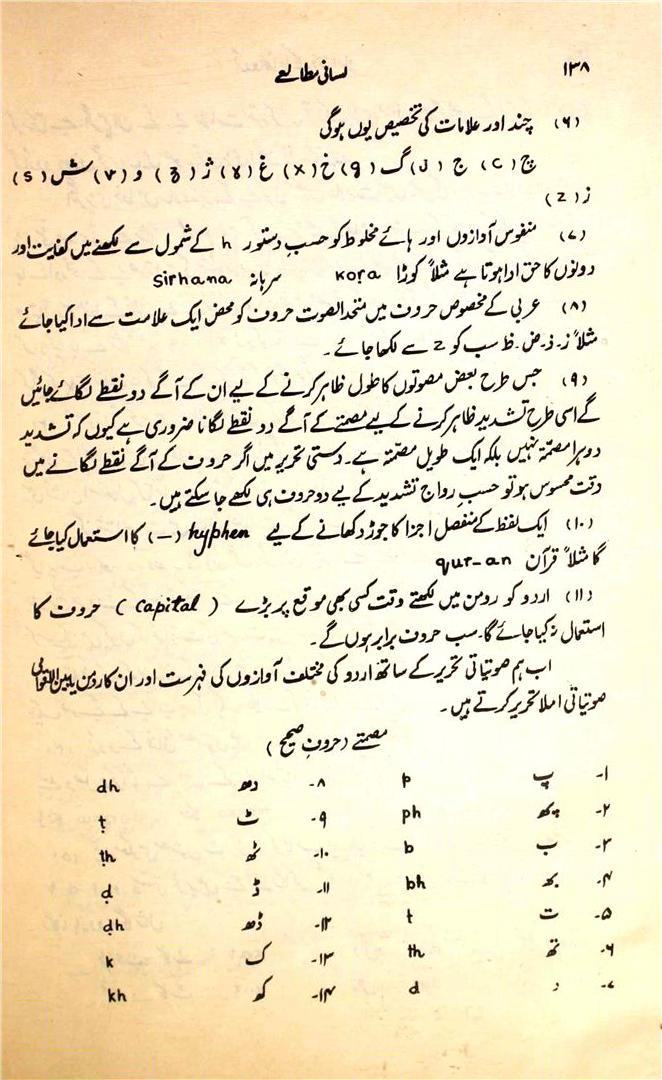 ۱۳۸ لسانی مطالعے
(۶) چند اور علامات کی تخصیص یوں ہوگی
چ (c) ج (J) گ (g) خ (x) غ (ɣ) ژ (ʒ) و (v) ش (s)
ز (z)
(۷) منفوس آوازوں اور ہائے مخلوط کو حسبِ دستور h کے شمول سے لکھنے میں کفایت اور
دونوں کا حق ادا ہوتا ہے مثلاً کوڑا koṛa سرہانہ sirhana
(۸) عربی کے مخصوص حروف میں متحد الصوت حروف کو محض ایک علامت سے ادا کیا جائے
مثلاً ز۔ ذ۔ ض۔ ظ سب کو z سے لکھا جائے۔
(۹) جس طرح بعض مصوتوں کا طول ظاہر کرنے کے لیے ان کے آگے دو نقطے لگائے جائیں
گے اسی طرح تشدید ظاہر کرنے کے لیے مصمتے کے آگے دو نقطے لگانا ضروری ہے کیوں کہ تشدید
دوہرا مصمتہ نہیں بلکہ ایک طویل مصمتہ ہے۔ دستی تحریر میں اگر حروف کے آگے نقطے لگانے میں
دقت محسوس ہو تو حسبِ رواج تشدید کے لیے دو حروف ہی لکھے جا سکتے ہیں۔
(۱۰) ایک لفظ کے منفصل اجزا کا جوڑ دکھانے کے لیے hyphen (-) کا استعمال کیا جائے
گا مثلاً قرآن qur-an
(۱۱) اردو کو رومن میں لکھتے وقت کسی بھی موقع پر بڑے (capital) حروف کا
استعمال نہ کیا جائے گا۔ سب حروف برابر ہوں گے۔
اب ہم صوتیاتی تحریر کے ساتھ اردو کی مختلف آوازوں کی فہرست اور ان کا رومن یا بین الاقوامی
صوتیاتی املا تحریر کرتے ہیں۔
مصمتے (حروفِ صحیح)
۱۔ پ p ۸۔ دھ dh
۲۔ پھ ph ۹۔ ٹ ṭ
۳۔ ب b ۱۰۔ ٹھ ṭh
۴۔ بھ bh ۱۱۔ ڈ ḍ
۵۔ ت t ۱۲۔ ڈھ ḍh
۶۔ تھ th ۱۳۔ ک k
۷۔ د d ۱۴۔ کھ kh